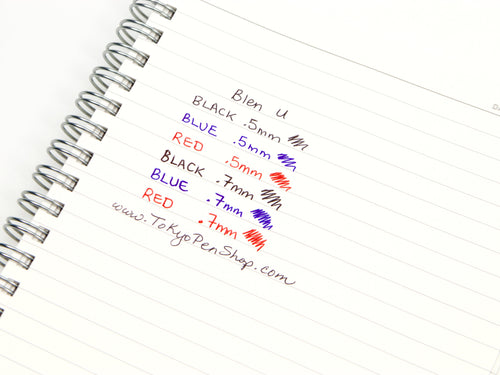 Blen U
BLACK .5mm
BLUE .5mm
RED .5mm
BLACK .7mm
BLUE .7mm
RED .7mm
www.TokyoPenShop.com